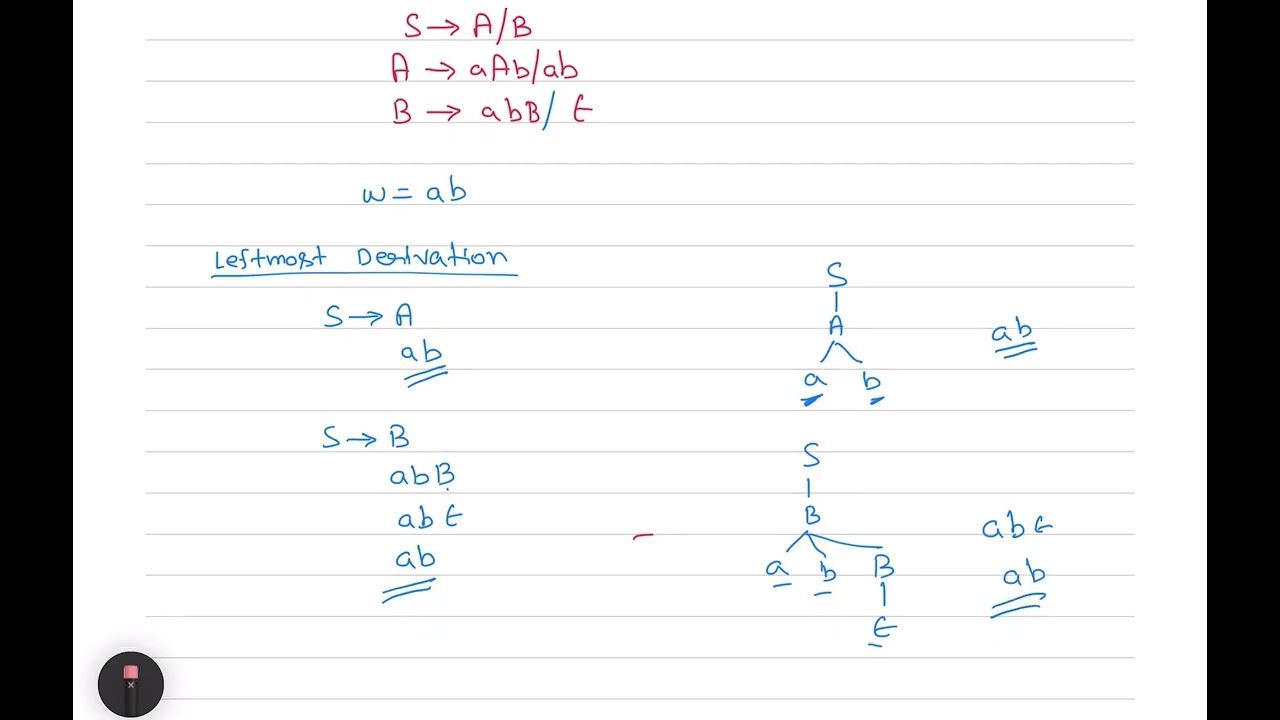 S → A/B
A → aAb/ab
B → abB/ ε
w = ab
Leftmost Derivation
S → A
ab
S → B
abB
abε
ab
S
A
a b
ab
S
B
a b B
ε
abε
ab